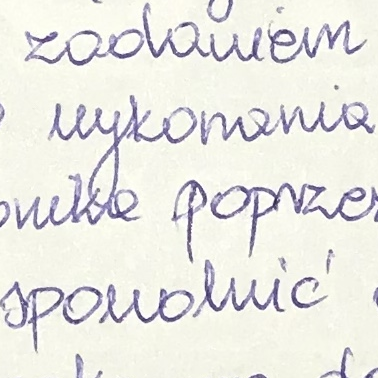 zadaniem
wykonania
poprze
spowolnić